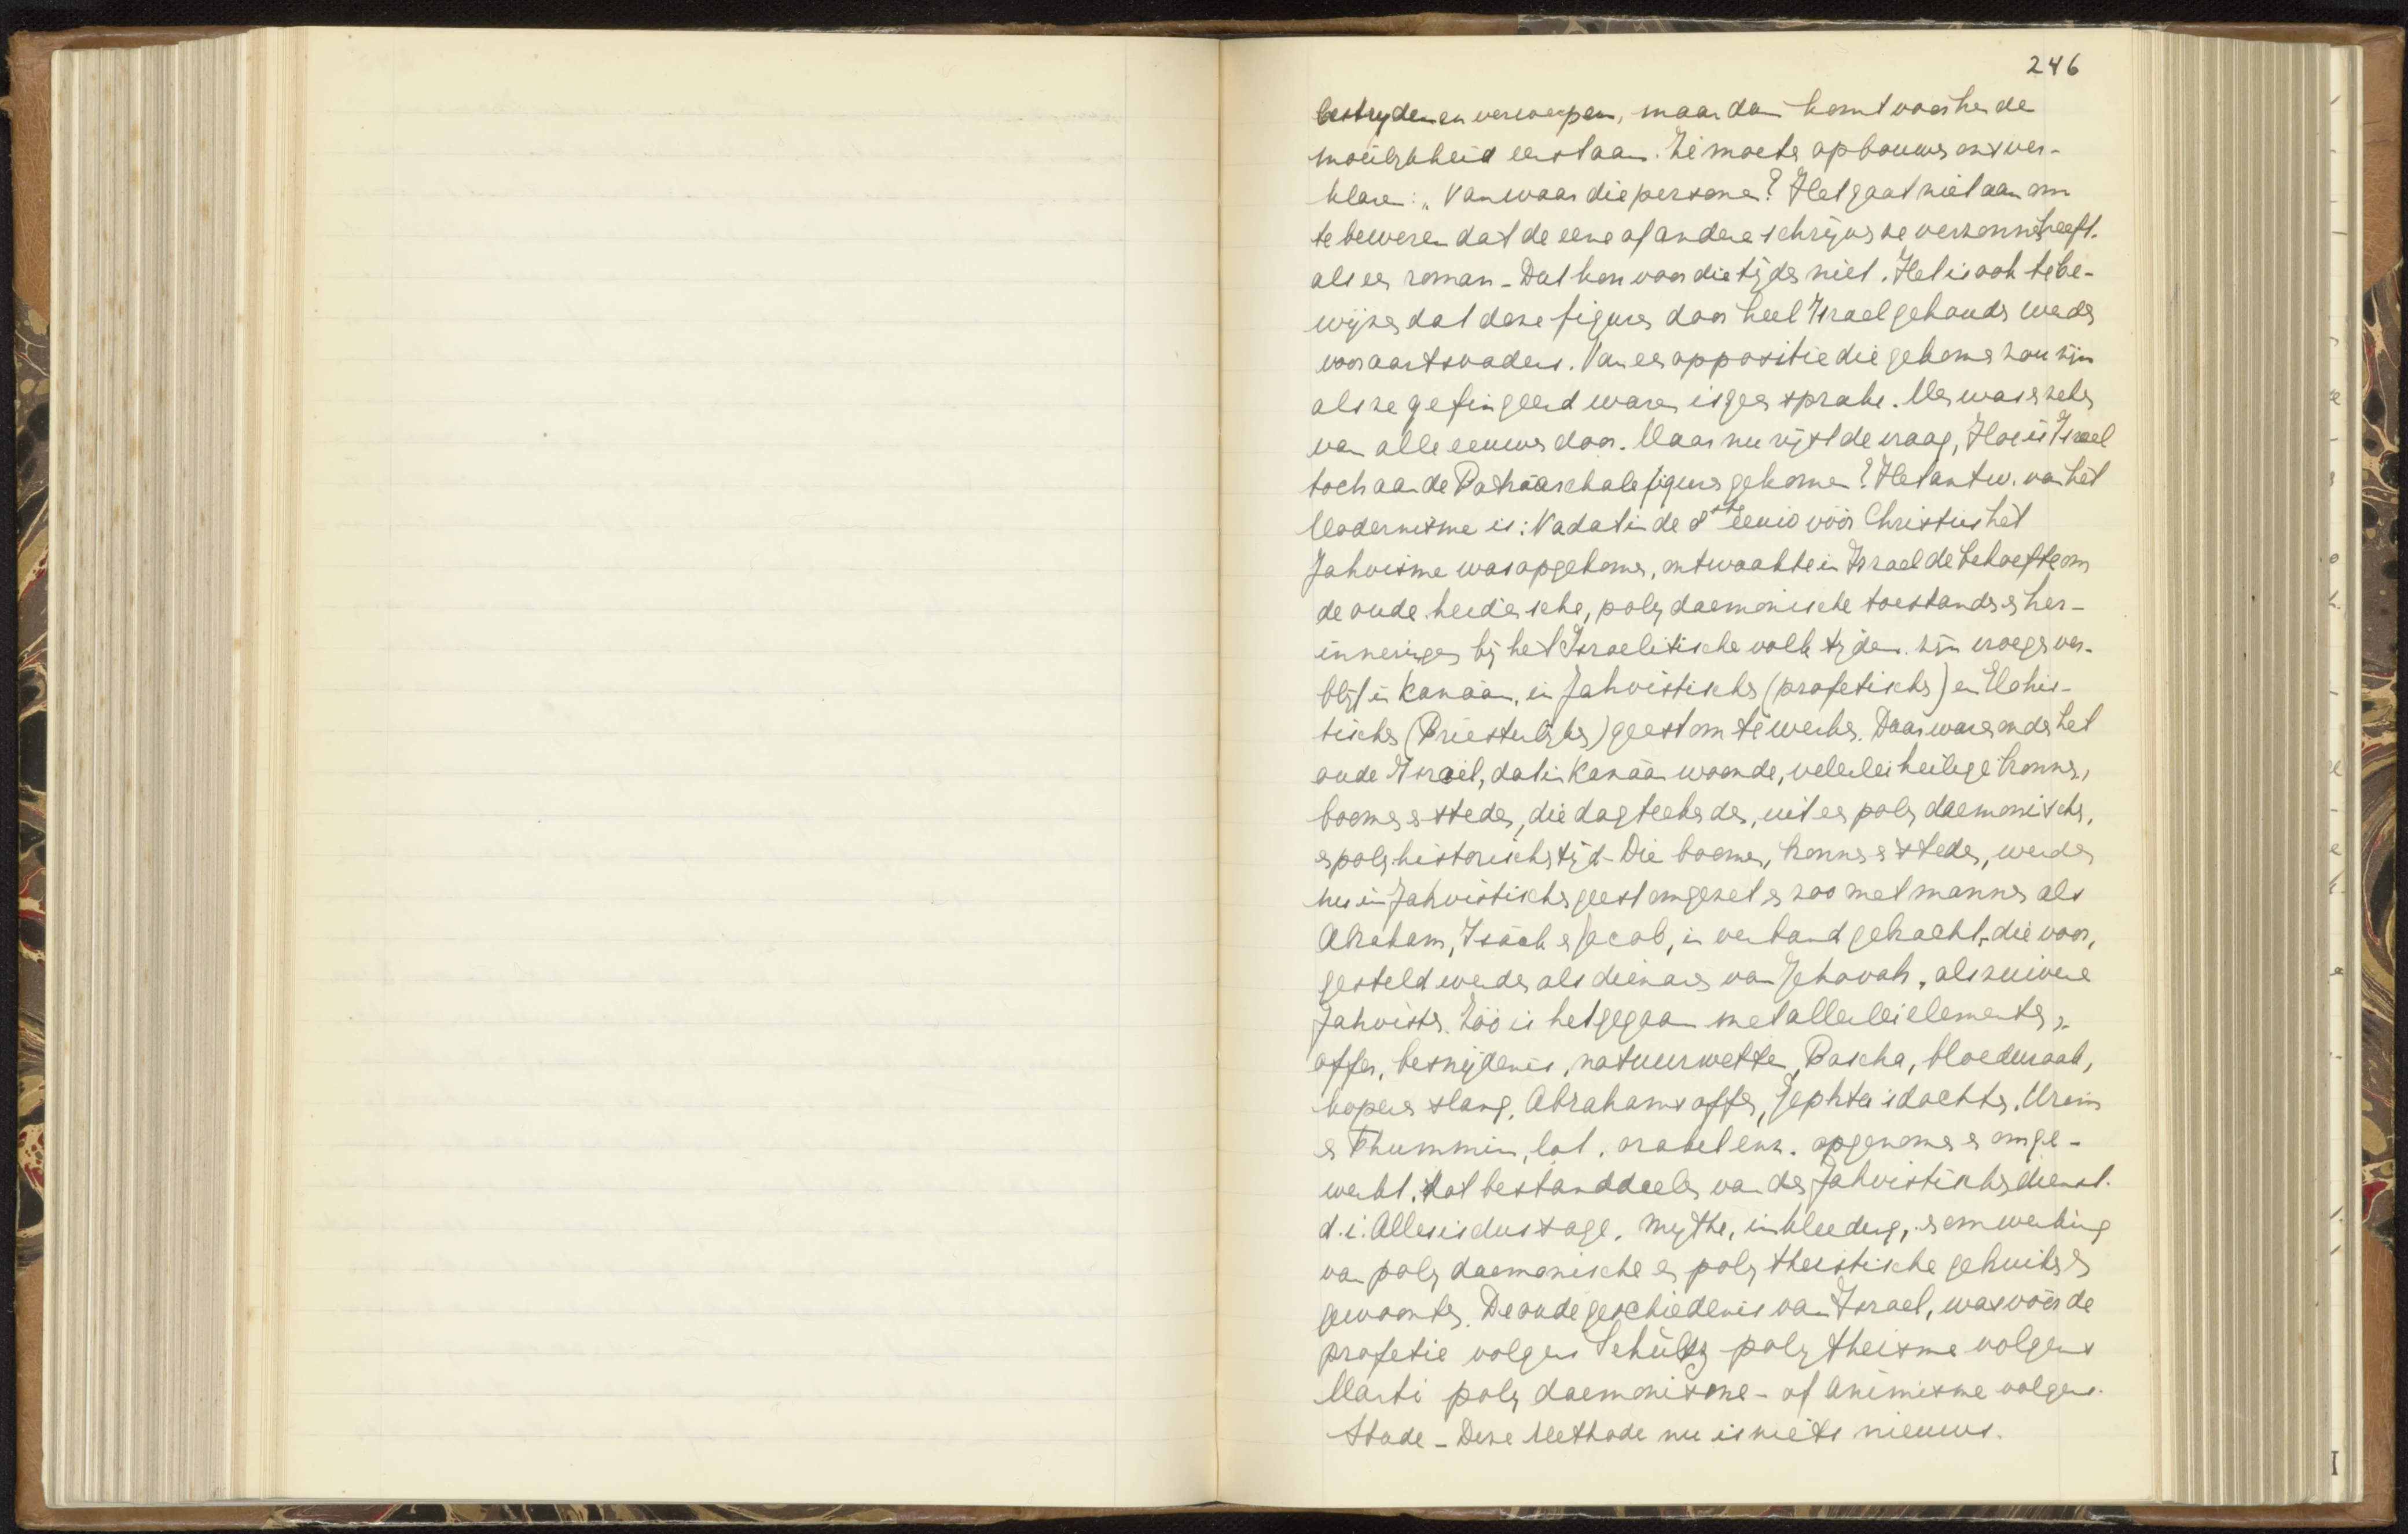 246
bestryden en verwerpen, maar dan komt voor hen de
moeilijkheid eerst aan. Ze moeten opbouwen ons ver-
klaren: „Vanwaar die personen? Het gaat niet aan om
te beweren dat de eene of andere schrijver ze verzonnen heeft.
als een roman - Dat kon voor die tijden niet. Het is ook te be-
wijzen dat deze figuren door heel Israel gehouden werden
voor aartsvaders. Van een oppositie die gekomen zou zijn
als ze gefingeerd waren is geen sprake. Men was er zeker
van alle eeuwen door. Maar nu rijst de vraag, Hoe is Israel
toch aan de Patriarchale figuren gekomen? Het antw. van het
Modernisme is: Nadat in de 8ste eeuw vóór Christus het
Jahvisme was opgekomen, ontwaakte in Israel de behoefte om
de oude heidensche, polydaemonische toestanden en her-
inneringen bij het Israelitische volk tijdens zijn vroeger ver-
blijf in Kanaän, in Jahvistischen (profetischen) en Elohis-
tischen (Priesterlijken) geest om te werken. Daar waren onder het
oude Israel, dat in Kanaän woonde, velerlei heilige bronnen,
boomen en steden, die dagteekenden, uit een polydaemonischen,
en polyhistorischen tijd - Die boomen, bronnen en steden, werden
nu in Jahvistischen geest omgezet en zoo met mannen als
Abraham, Isaäk en Jacob, in verband gebracht, die voor,
gesteld werden als dienaren van Jehovah, als zuivere
Jahvisten. Zóó is het gegaan met allerlei elementen,
offer, besnijdenis, natuurwetten, Pascha, bloedwraak,
koperen slang, Abrahams offer, Jephta's dochter. Urim
en Thummim, lot, orakel enz. opgenomen en omge-
werkt, tot bestanddeelen van den Jahvistischen dienst.
d.i. Alles is dus sage, mythe, inkleeding, en omwerking
van polydaemonische en polytheistische gebruiken en
gewoonten. De oude geschiedenis van Israel, was vóór de
profetie volgens Schültz polytheisme volgens
Marti polydaemonisme - of Animisme volgens
Stade - Deze Methode nu is niets nieuws.